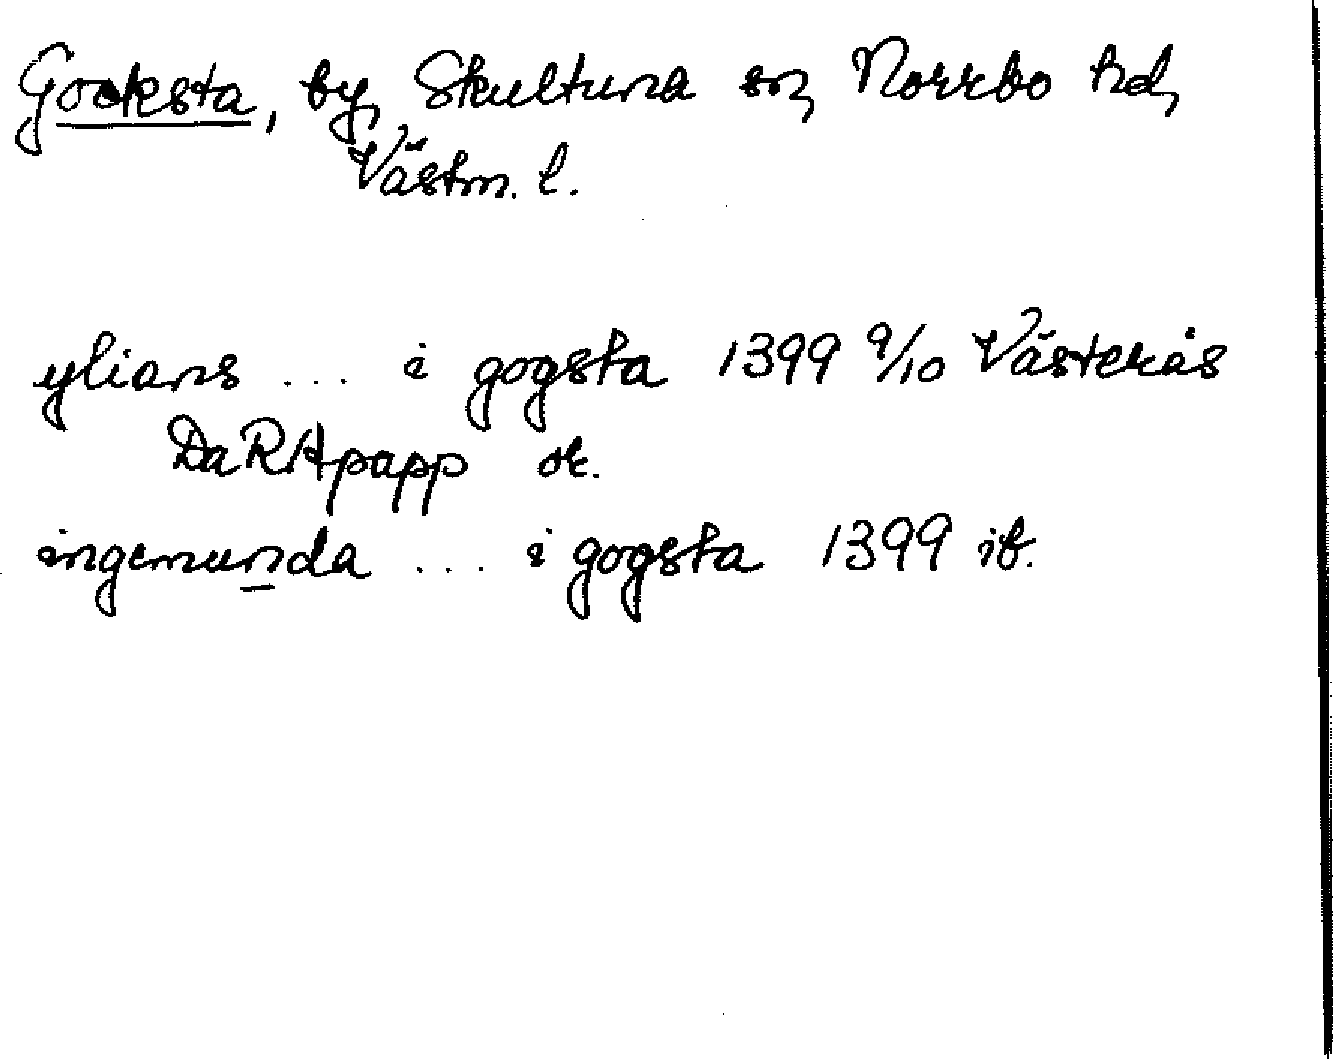 Gocksta, by, Skultuna sn, Norrbo hd,
Västm. l.
ylians ... i gogsta 1399 9/10 Västerås
DaRApapp or.
ingemunda ... i gogsta 1399 ib.